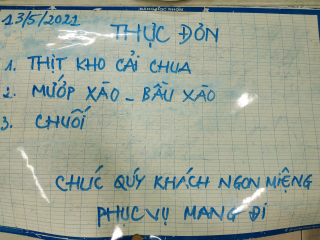 13/5/2021
THỰC ĐƠN
1. THỊT KHO CẢI CHUA
2. MƯỚP XÀO - BẦU XÀO
3. CHUỐI
CHÚC QÚY KHÁCH NGON MIỆNG
PHỤC VỤ MANG ĐI